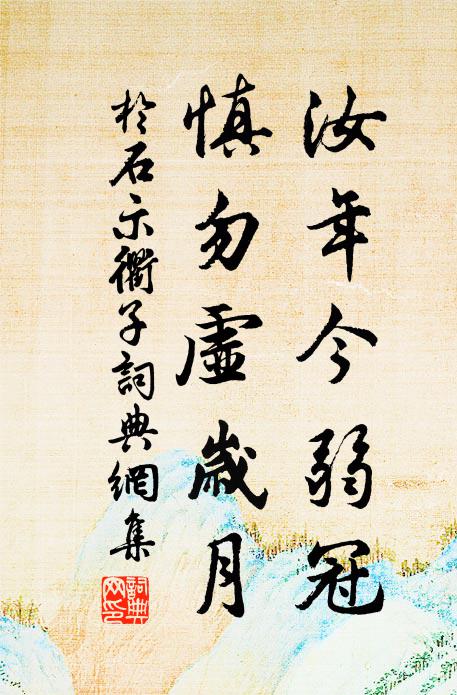 汝年今弱冠
慎勿虛歲月
於石示衢子詞典網集
詞典網印